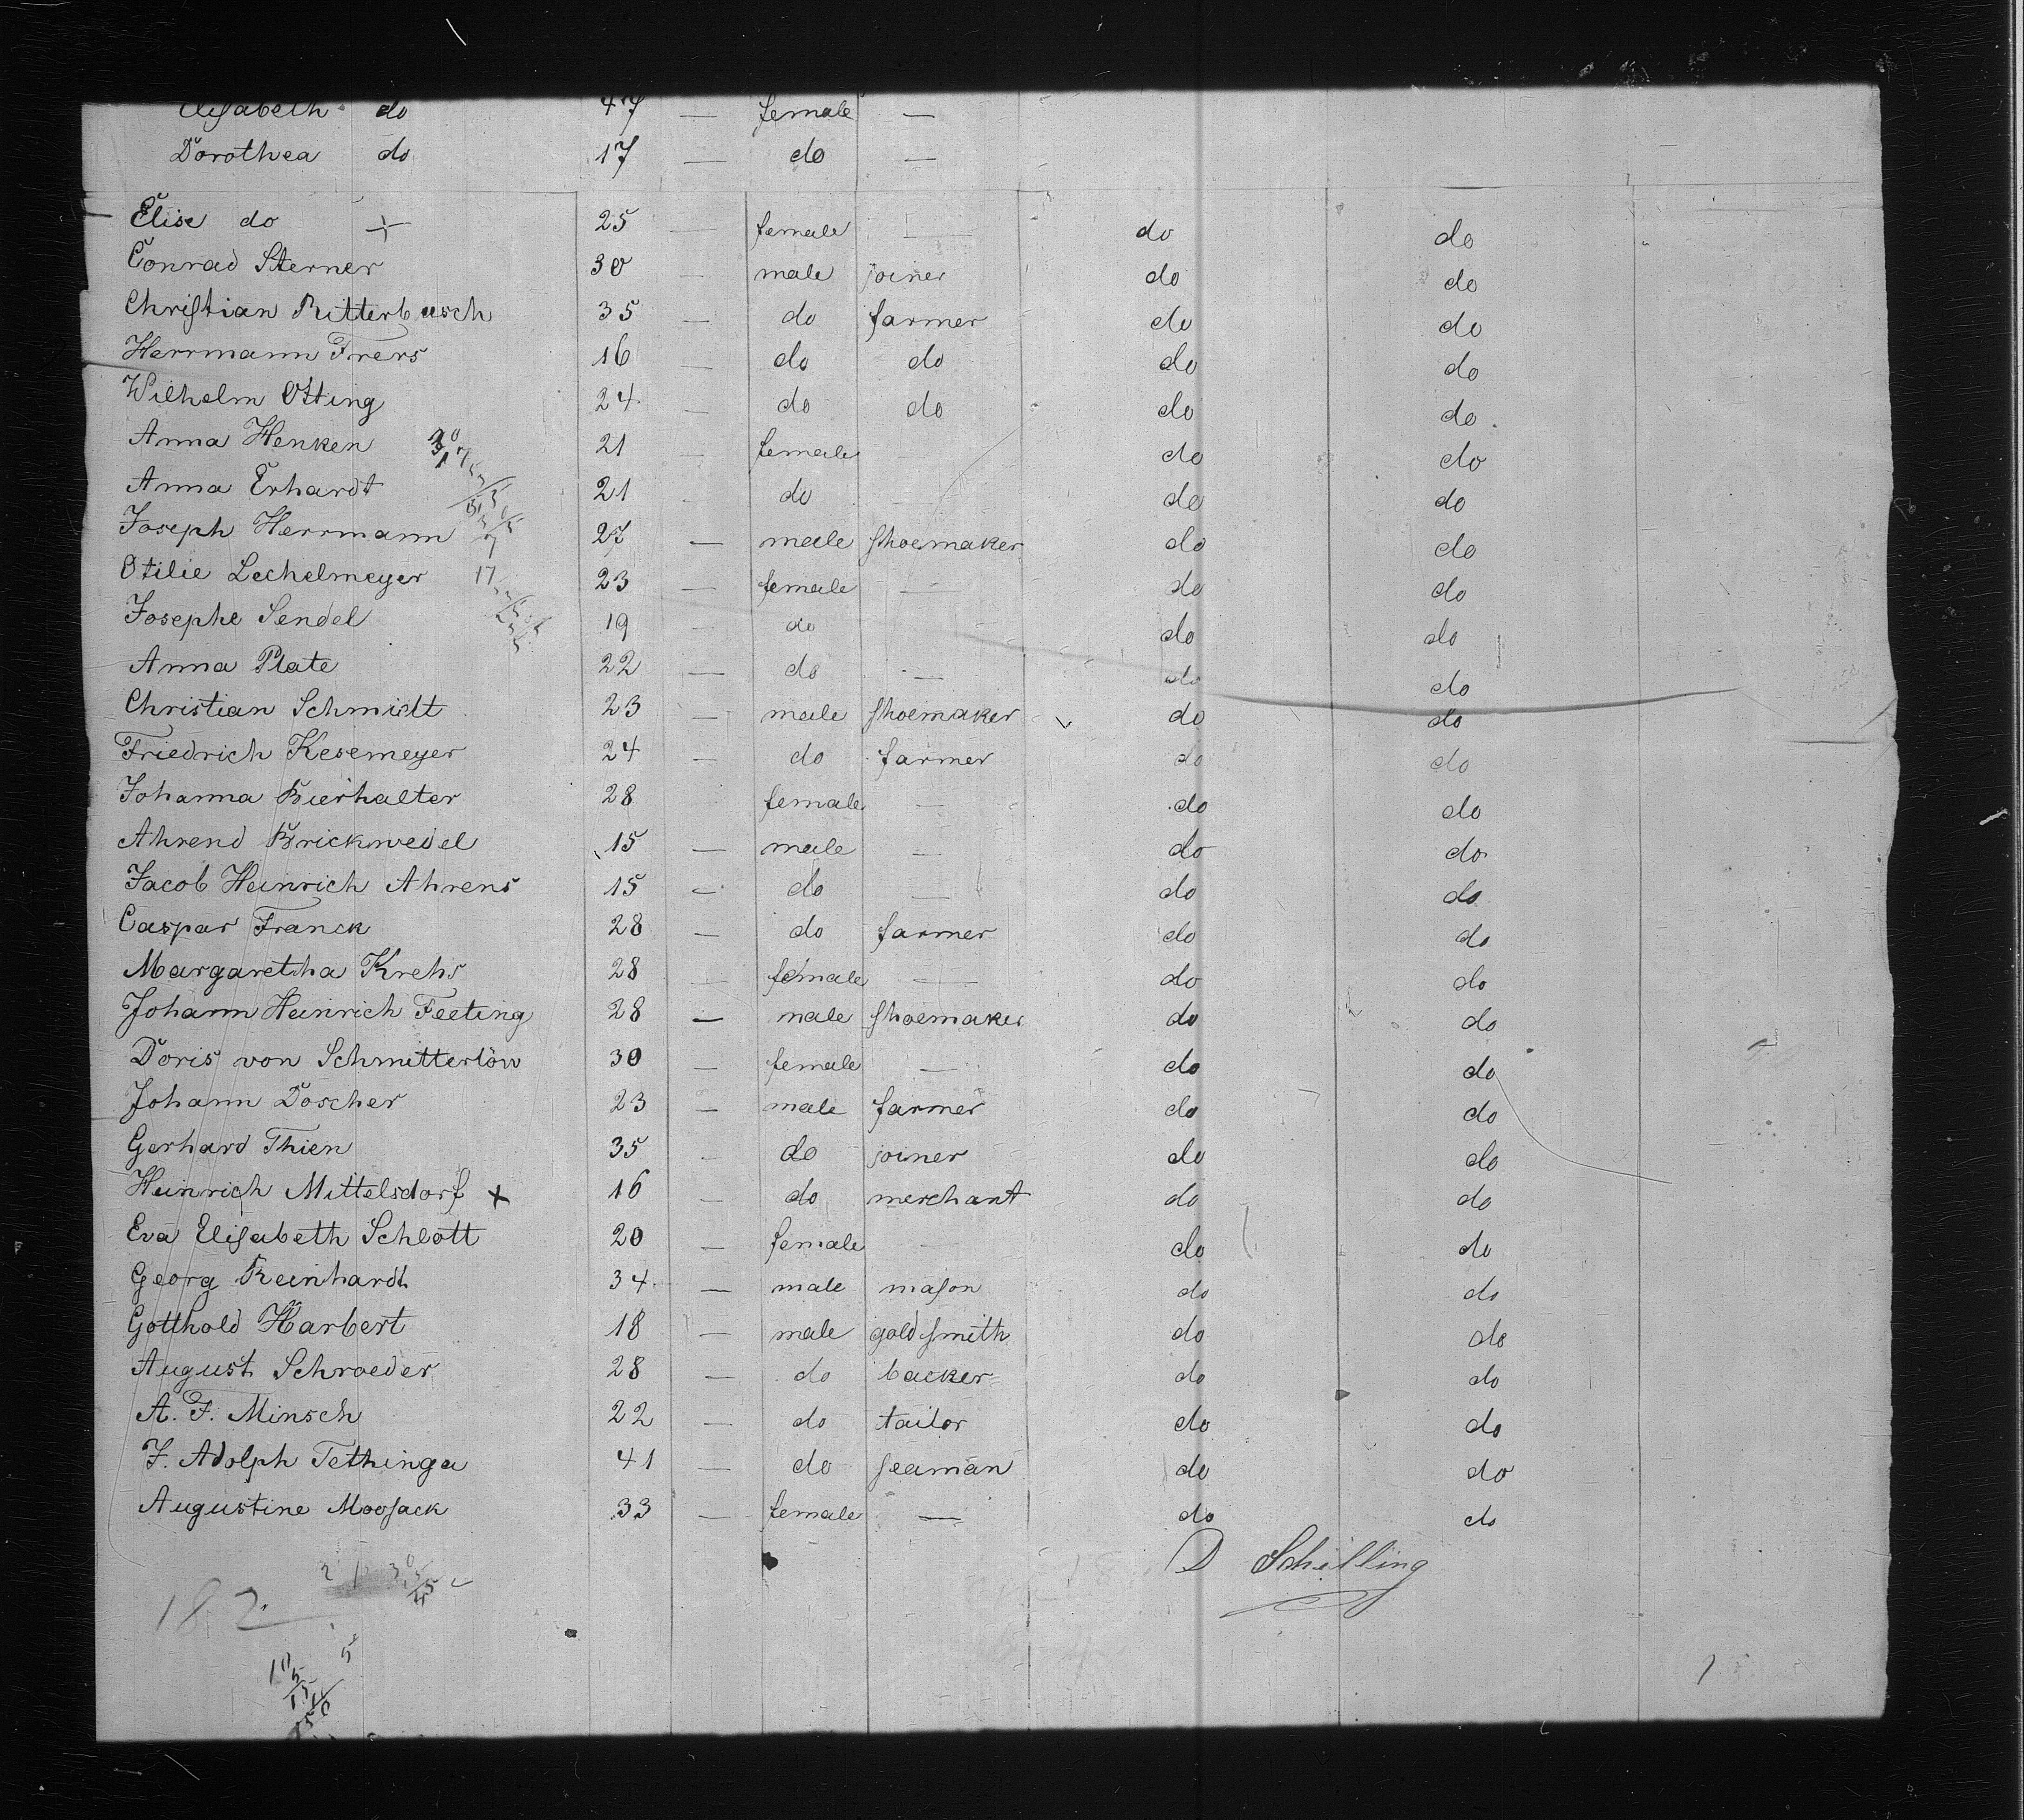 Elisabeth do 47 — female —
Dorothea do 17 — do —
Elise do + 25 — female — do do
Conrad Sterner 30 — male joiner do do
Christian Ritterbusch 35 — do farmer do do
Herrmann Frers 16 — do do do do
Wilhelm Otting 24 — do do do do
Anna Henken 21 — female — do do
Anna Erhardt 21 — do — do do
Joseph Herrmann 27 — male shoemaker do do
Otilie Lechelmeyer 17 23 — female — do do
Josephe Sendel 19 — do do do
Anna Plate 22 — do — do do
Christian Schmidt 23 — male shoemaker do do
Friedrich Kesemeyer 24 — do farmer do do
Johanna Bierhalter 28 female — do do
Ahrend Brickwedel 15 — male — do do
Jacob Heinrich Ahrens 15 — do — do do
Caspar Franck 28 — do farmer do do
Margaretha Krehs 28 — female — do do
Johann Heinrich Feeting 28 — male shoemaker do do
Doris von Schmitterlöw 30 — female — do do
Johann Döscher 23 — male farmer do do
Gerhard Thien 35 — do joiner do do
Heinrich Mittelsdorf x 16 — do merchant do do
Eva Elisabeth Schlott 20 — female — do do
Georg Reinhardt 34 — male mason do do
Gotthold Harbert 18 — male goldsmith do do
August Schroeder 28 — do backer do do
A. F. Minsch 22 — do tailor do do
F. Adolph Tethinga 41 — do seaman do do
Augustine Moosack 33 — female — do do
D Schilling
182